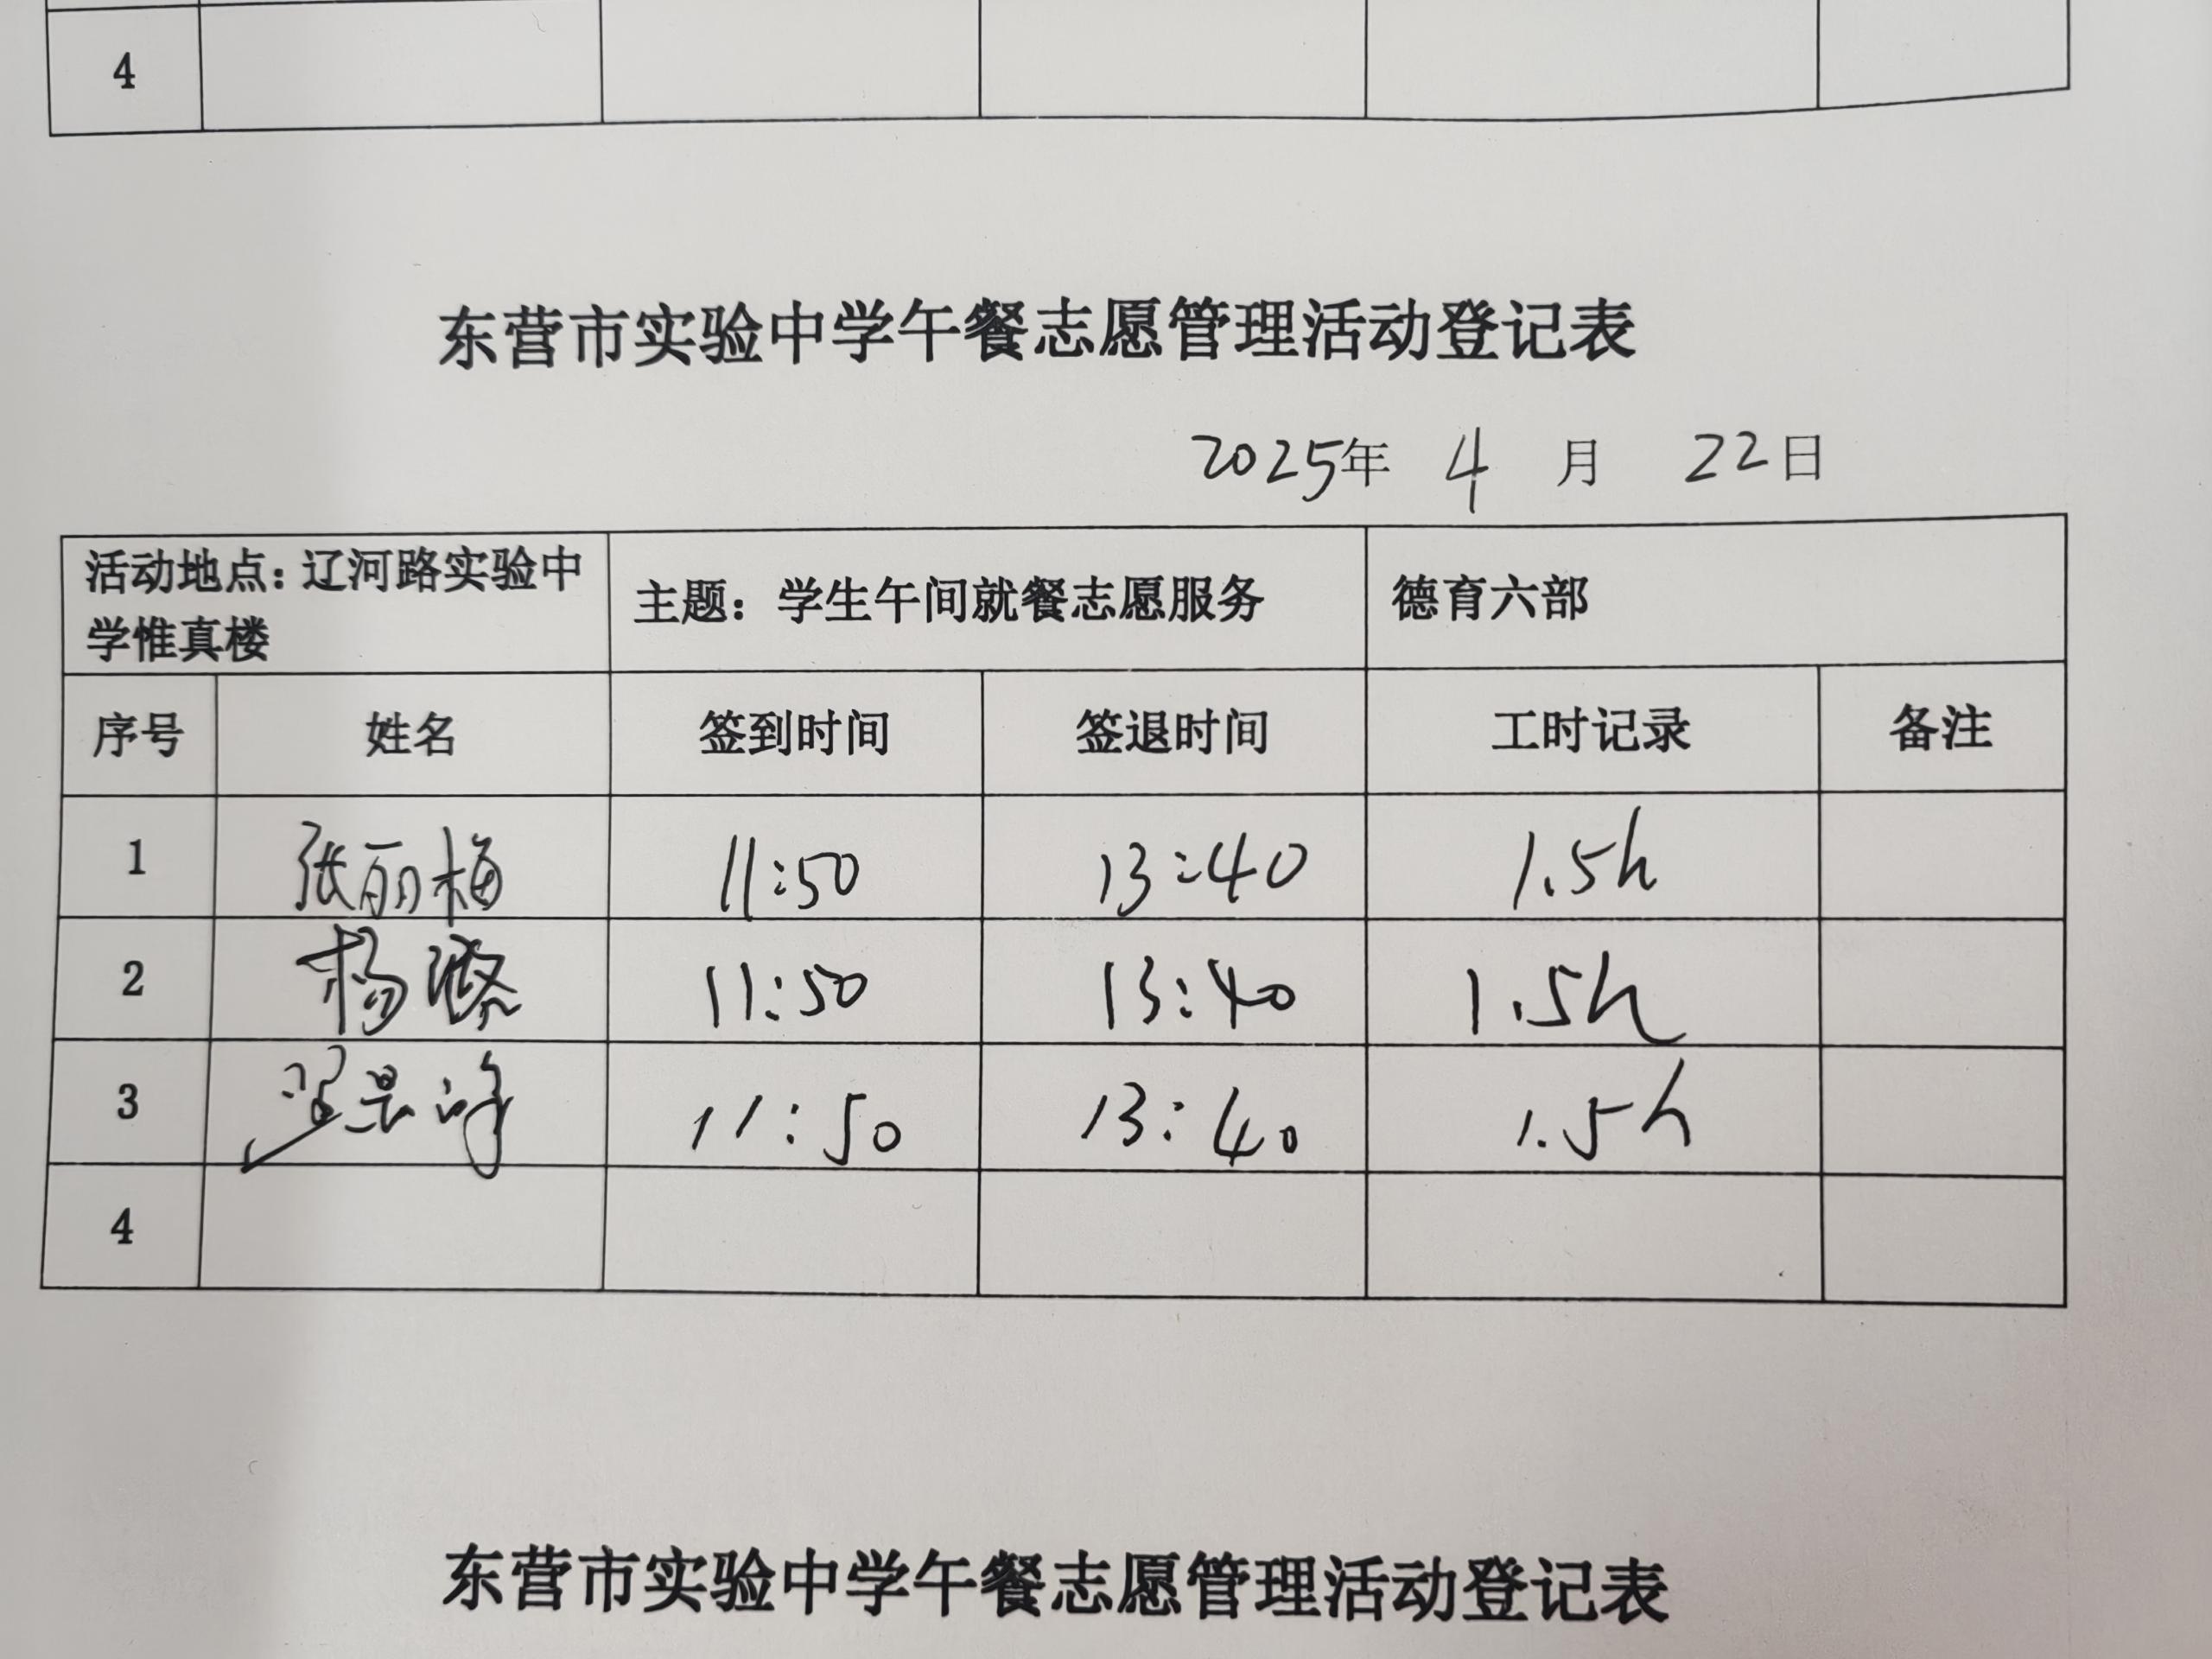 4
东营市实验中学午餐志愿管理活动登记表
2025年 4 月 22日
活动地点：辽河路实验中
学惟真楼
主题：学生午间就餐志愿服务
德育六部
序号 姓名 签到时间 签退时间 工时记录 备注
1 张丽梅 11:50 13:40 1.5h
2 杨 11:50 13:40 1.5h
3 11:50 13:40 1.5h
4
东营市实验中学午餐志愿管理活动登记表